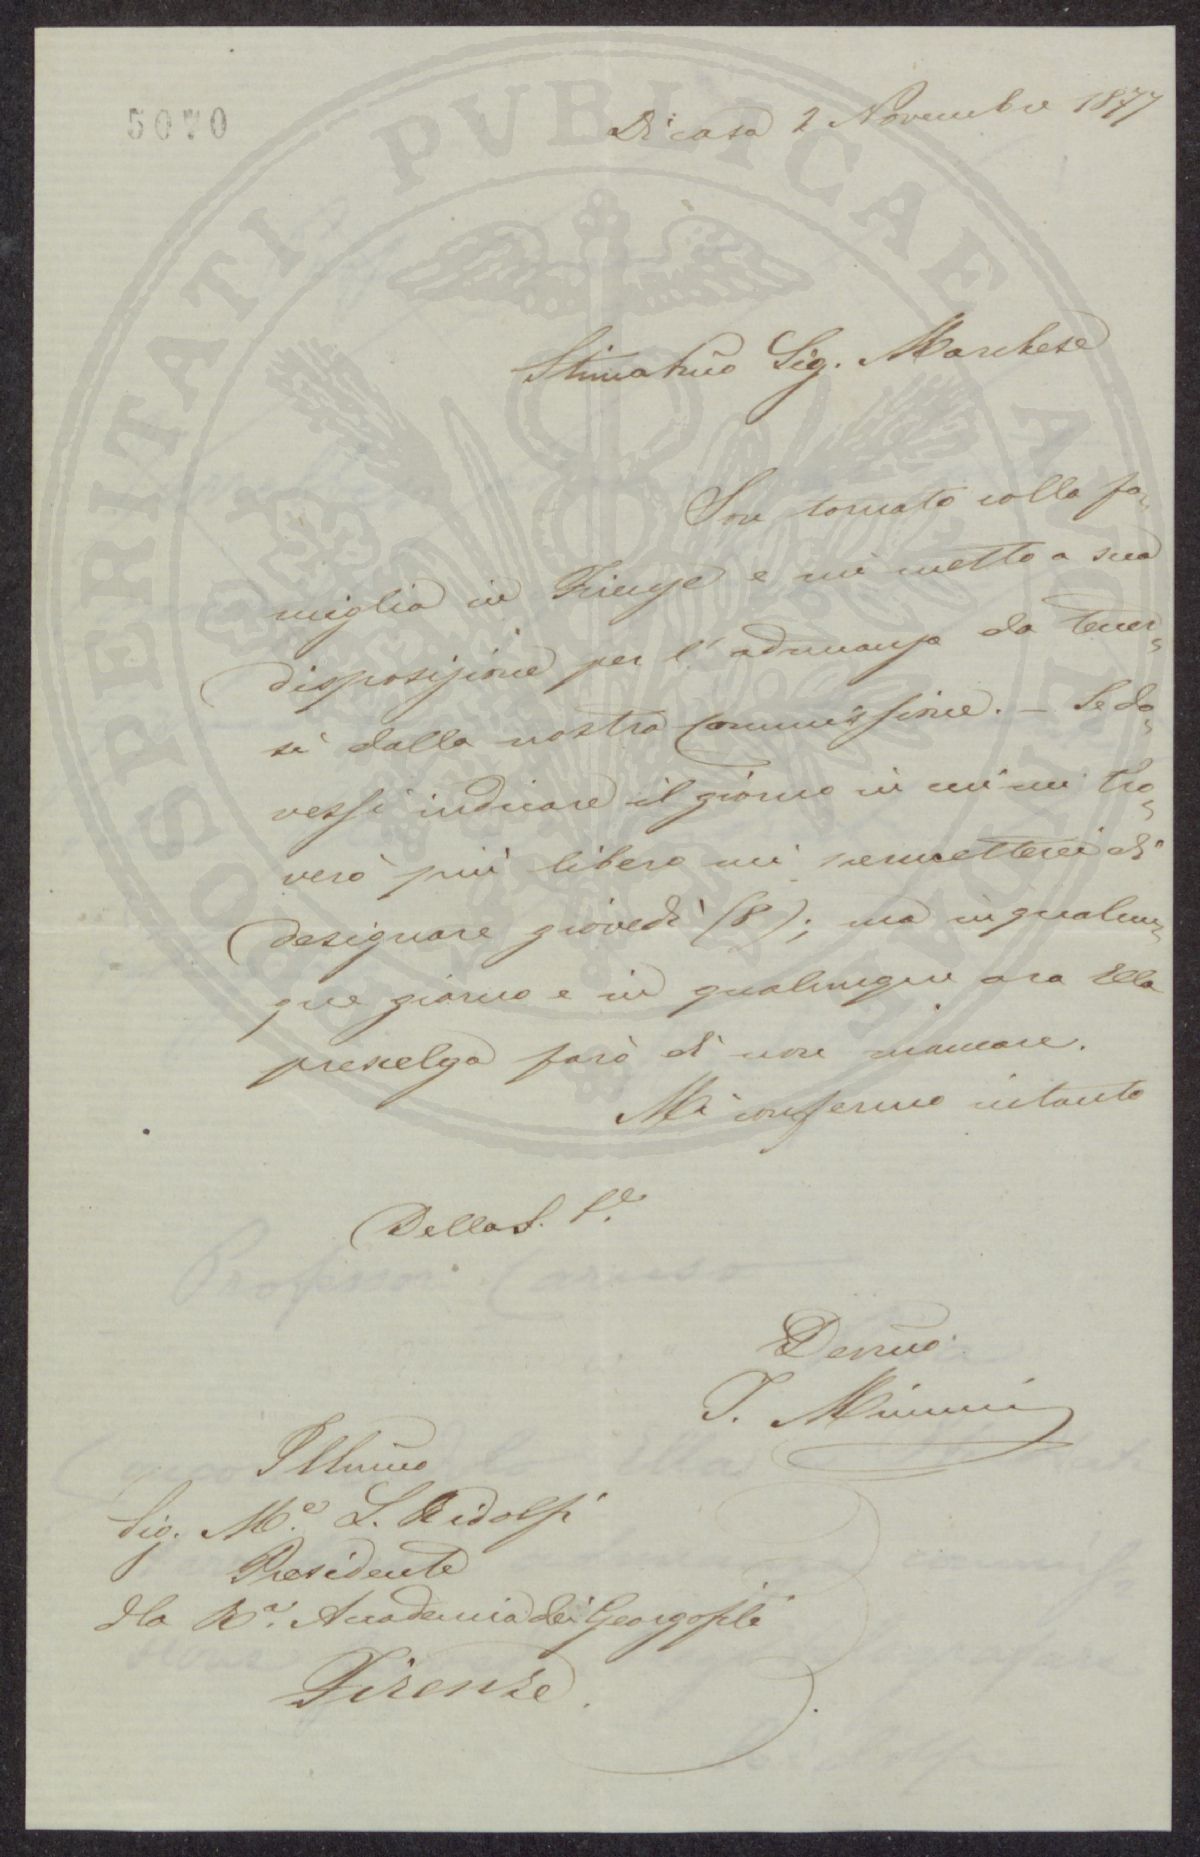 5070
Di casa 2 Novembre 1877
PROSPERITATI PVBLICAE AVGENDAE
Stimatm̃o Sig. Marchese
Son tornato colla fa-
miglia in Firenze e mi metto a sua
disposizione per l'adunanza da tener-
si dalla nostra Commissione. - Se do-
vessi indicare il giorno in cui mi tro-
verò più libero mi permetterei di
designare giovedì (8); ma in qualun-
que giorno e in qualunque ora Ella
prescelga farò di non mancare.
Mi confermo intanto
Della S. V.
Devm̃o
Illm̃o
Sig. M.e L. Ridolfi
Presidente
dla R.a Accademia dei Georgofili
Firenze.
Professor Caruso